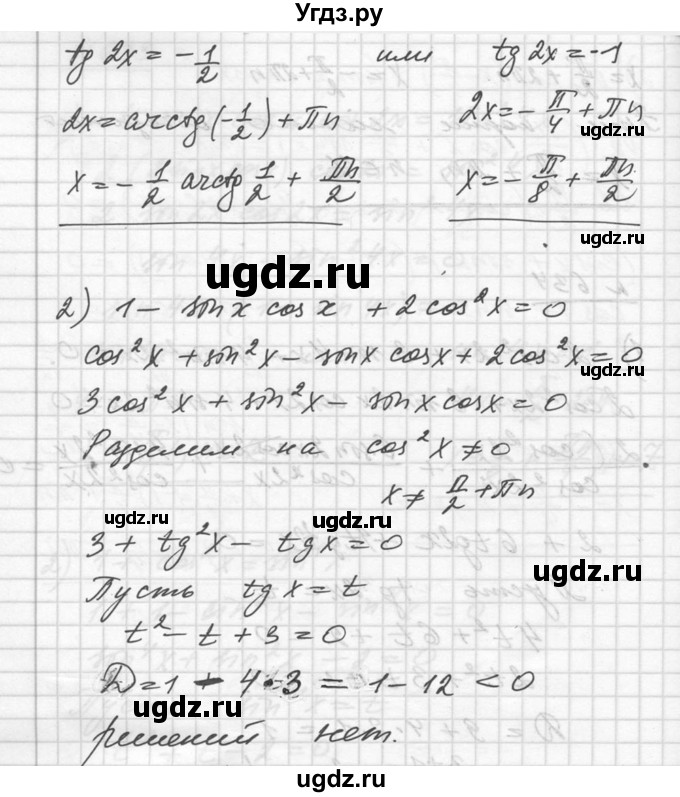 Угдз.ру
tg 2x = -1/2 или tg 2x = -1
2x = arctg(-1/2) + Пn 2x = -П/4 + Пn
ugdz.ru
x = -1/2 arctg 1/2 + Пn/2 x = -П/8 + Пn/2
ugdz.ru
ugdz.ru
2) 1 - sin x cos x + 2cos²x = 0
cos²x + sin²x - sin x cos x + 2cos²x = 0
ugdz.ru
3cos²x + sin²x - sin x cos x = 0
Разделим на cos²x ≠ 0
x ≠ П/2 + Пn
ugdz.ru ugdz.ru
3 + tg²x - tg x = 0
ugdz.ru
Пусть tg x = t
t² - t + 3 = 0
D = 1 - 4·3 = 1 - 12 < 0
ugdz.ru
решений нет.
ugdz.ru
ugdz.ru